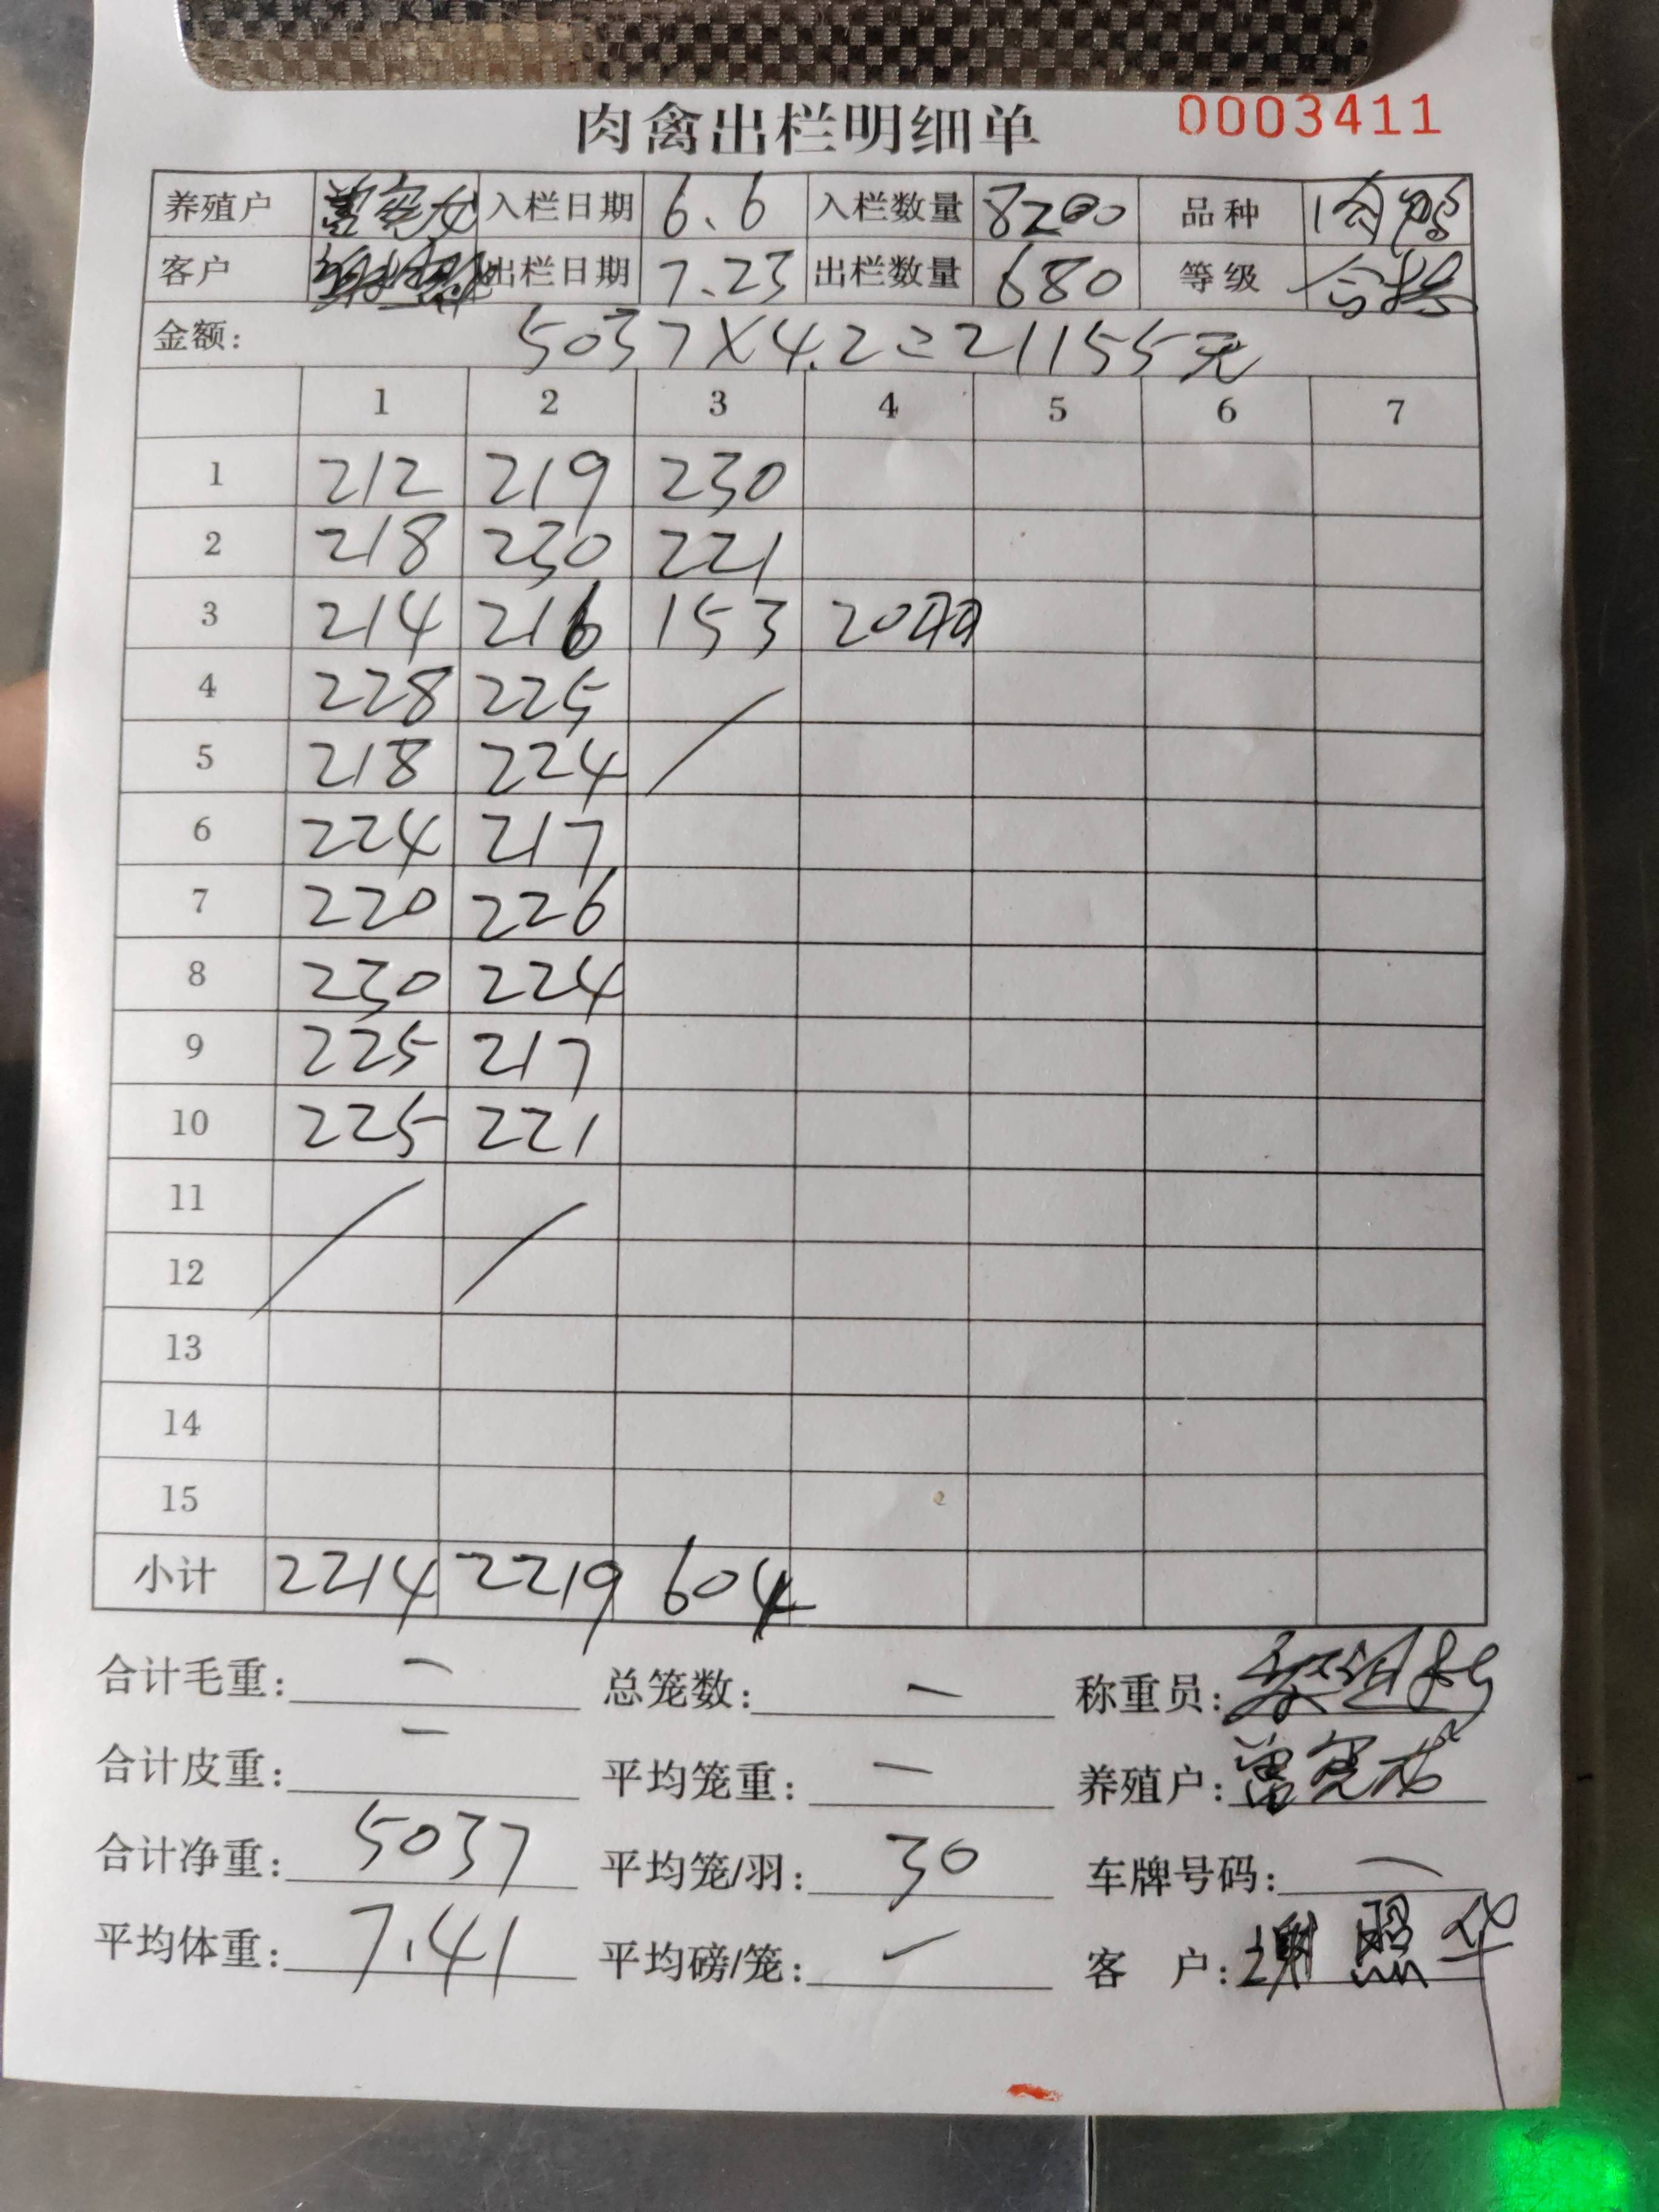 肉禽出栏明细单 0003411
养殖户 入栏日期 6.6 入栏数量 8200 品种
客户 出栏日期 7.23 出栏数量 680 等级 合格
金额: 5037×4.2=21155元
1 2 3 4 5 6 7
1 212 219 230
2 218 230 221
3 214 216 153 20只
4 228 225
5 218 224
6 224 217
7 220 226
8 230 224
9 225 217
10 225 221
11
12
13
14
15
小计 2214 2219 604
合计毛重: 一 总笼数: 一 称重员:
合计皮重: 一 平均笼重: 一 养殖户:
合计净重: 5037 平均笼/羽: 30 车牌号码: 一
平均体重: 7.41 平均磅/笼: 一 客 户: 谢照华